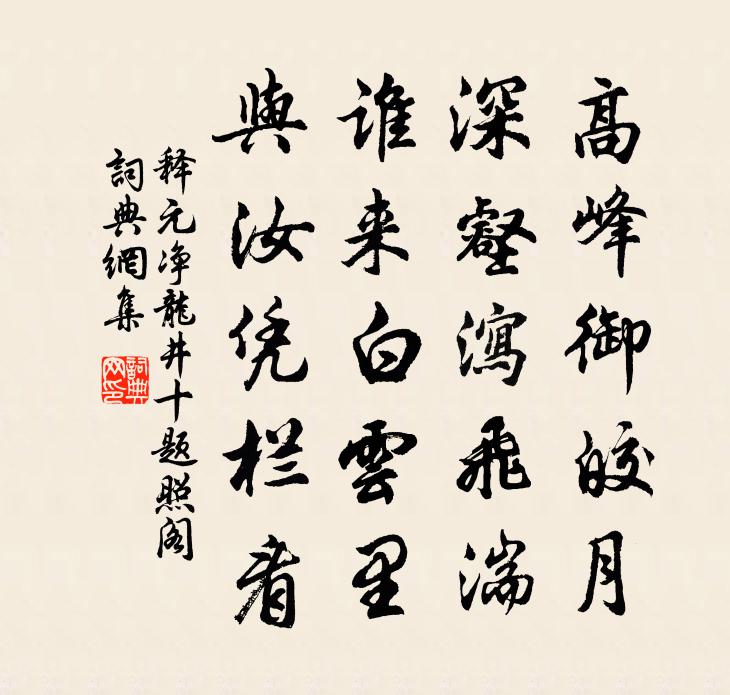 高峰御皎月
深壑瀉飛湍
谁来白雲里
與汝凭栏看
释元净龍井十题照阁
詞典網集
詞典网印